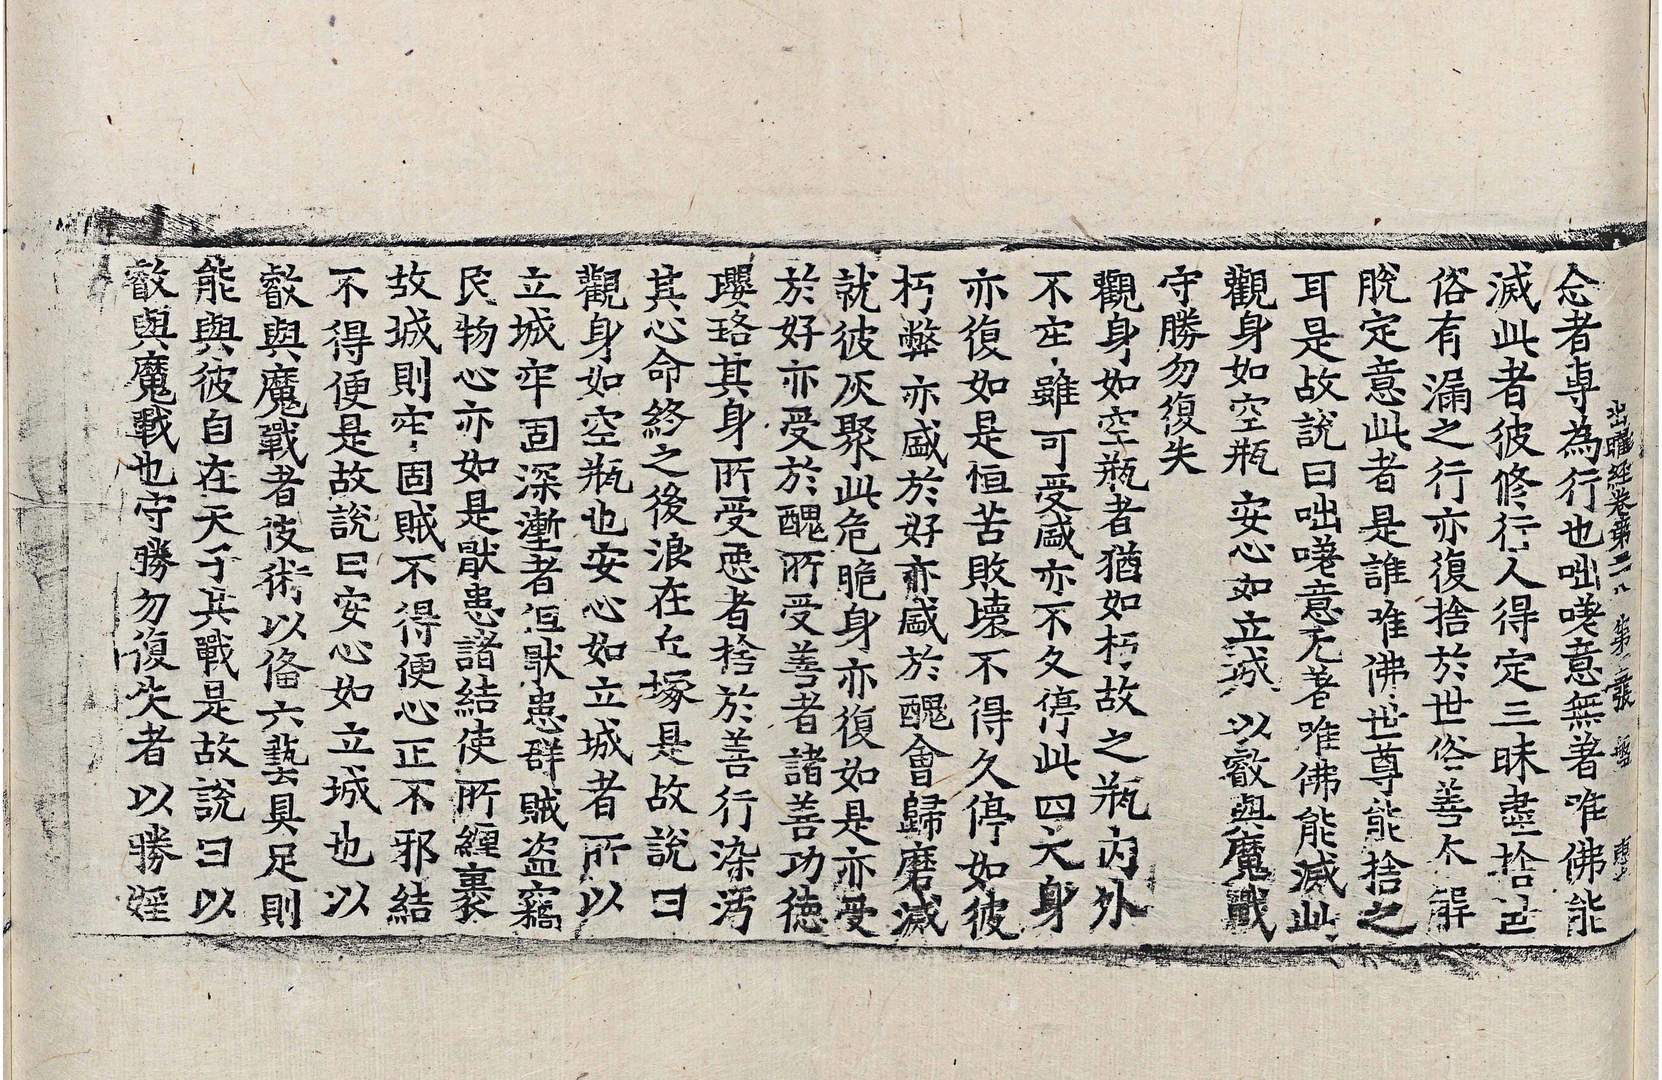 出曜經卷第二八 第二張 墼
念者専為行也咄嗟意無著唯佛能
滅此者彼修行人得定三昧盡捨世
俗有漏之行亦復捨於世俗善本解
脫定意此者是誰唯佛世尊能捨之
耳是故說曰咄嗟意无著唯佛能滅此
觀身如空瓶 安心如立城 以叡與魔戰
守勝勿復失
觀身如空瓶者猶如朽故之瓶內外
不牢雖可受盛亦不久停此四大身
亦復如是恒苦敗壞不得久停如彼
朽弊亦盛於好亦盛於醜會歸磨滅
就彼灰聚此危脆身亦復如是亦受
於好亦受於醜所受善者諸善功德
瓔珞其身所受惡者捨於善行染污
其心命終之後浪在丘塚是故說曰
觀身如空瓶也安心如立城者所以
立城牢固深塹者但猒患群賊盜竊
民物心亦如是猒患諸結使所纏裹
故城則牢固賊不得便心正不邪結
不得便是故說曰安心如立城也以
叡與魔戰者彼術以俻六藝具足則
能與彼自在天子共戰是故說曰以
叡與魔戰也守勝勿復失者以勝婬